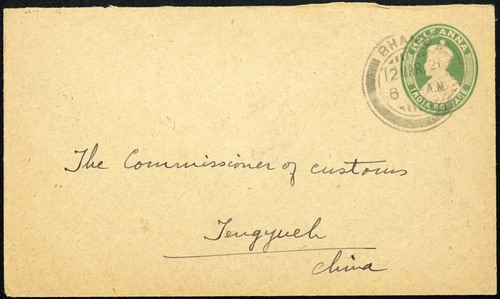 HALF ANNA
INDIA POSTAGE
BHA
12
21
6 A.M.
The Commissioner of customs
Tengyueh
China